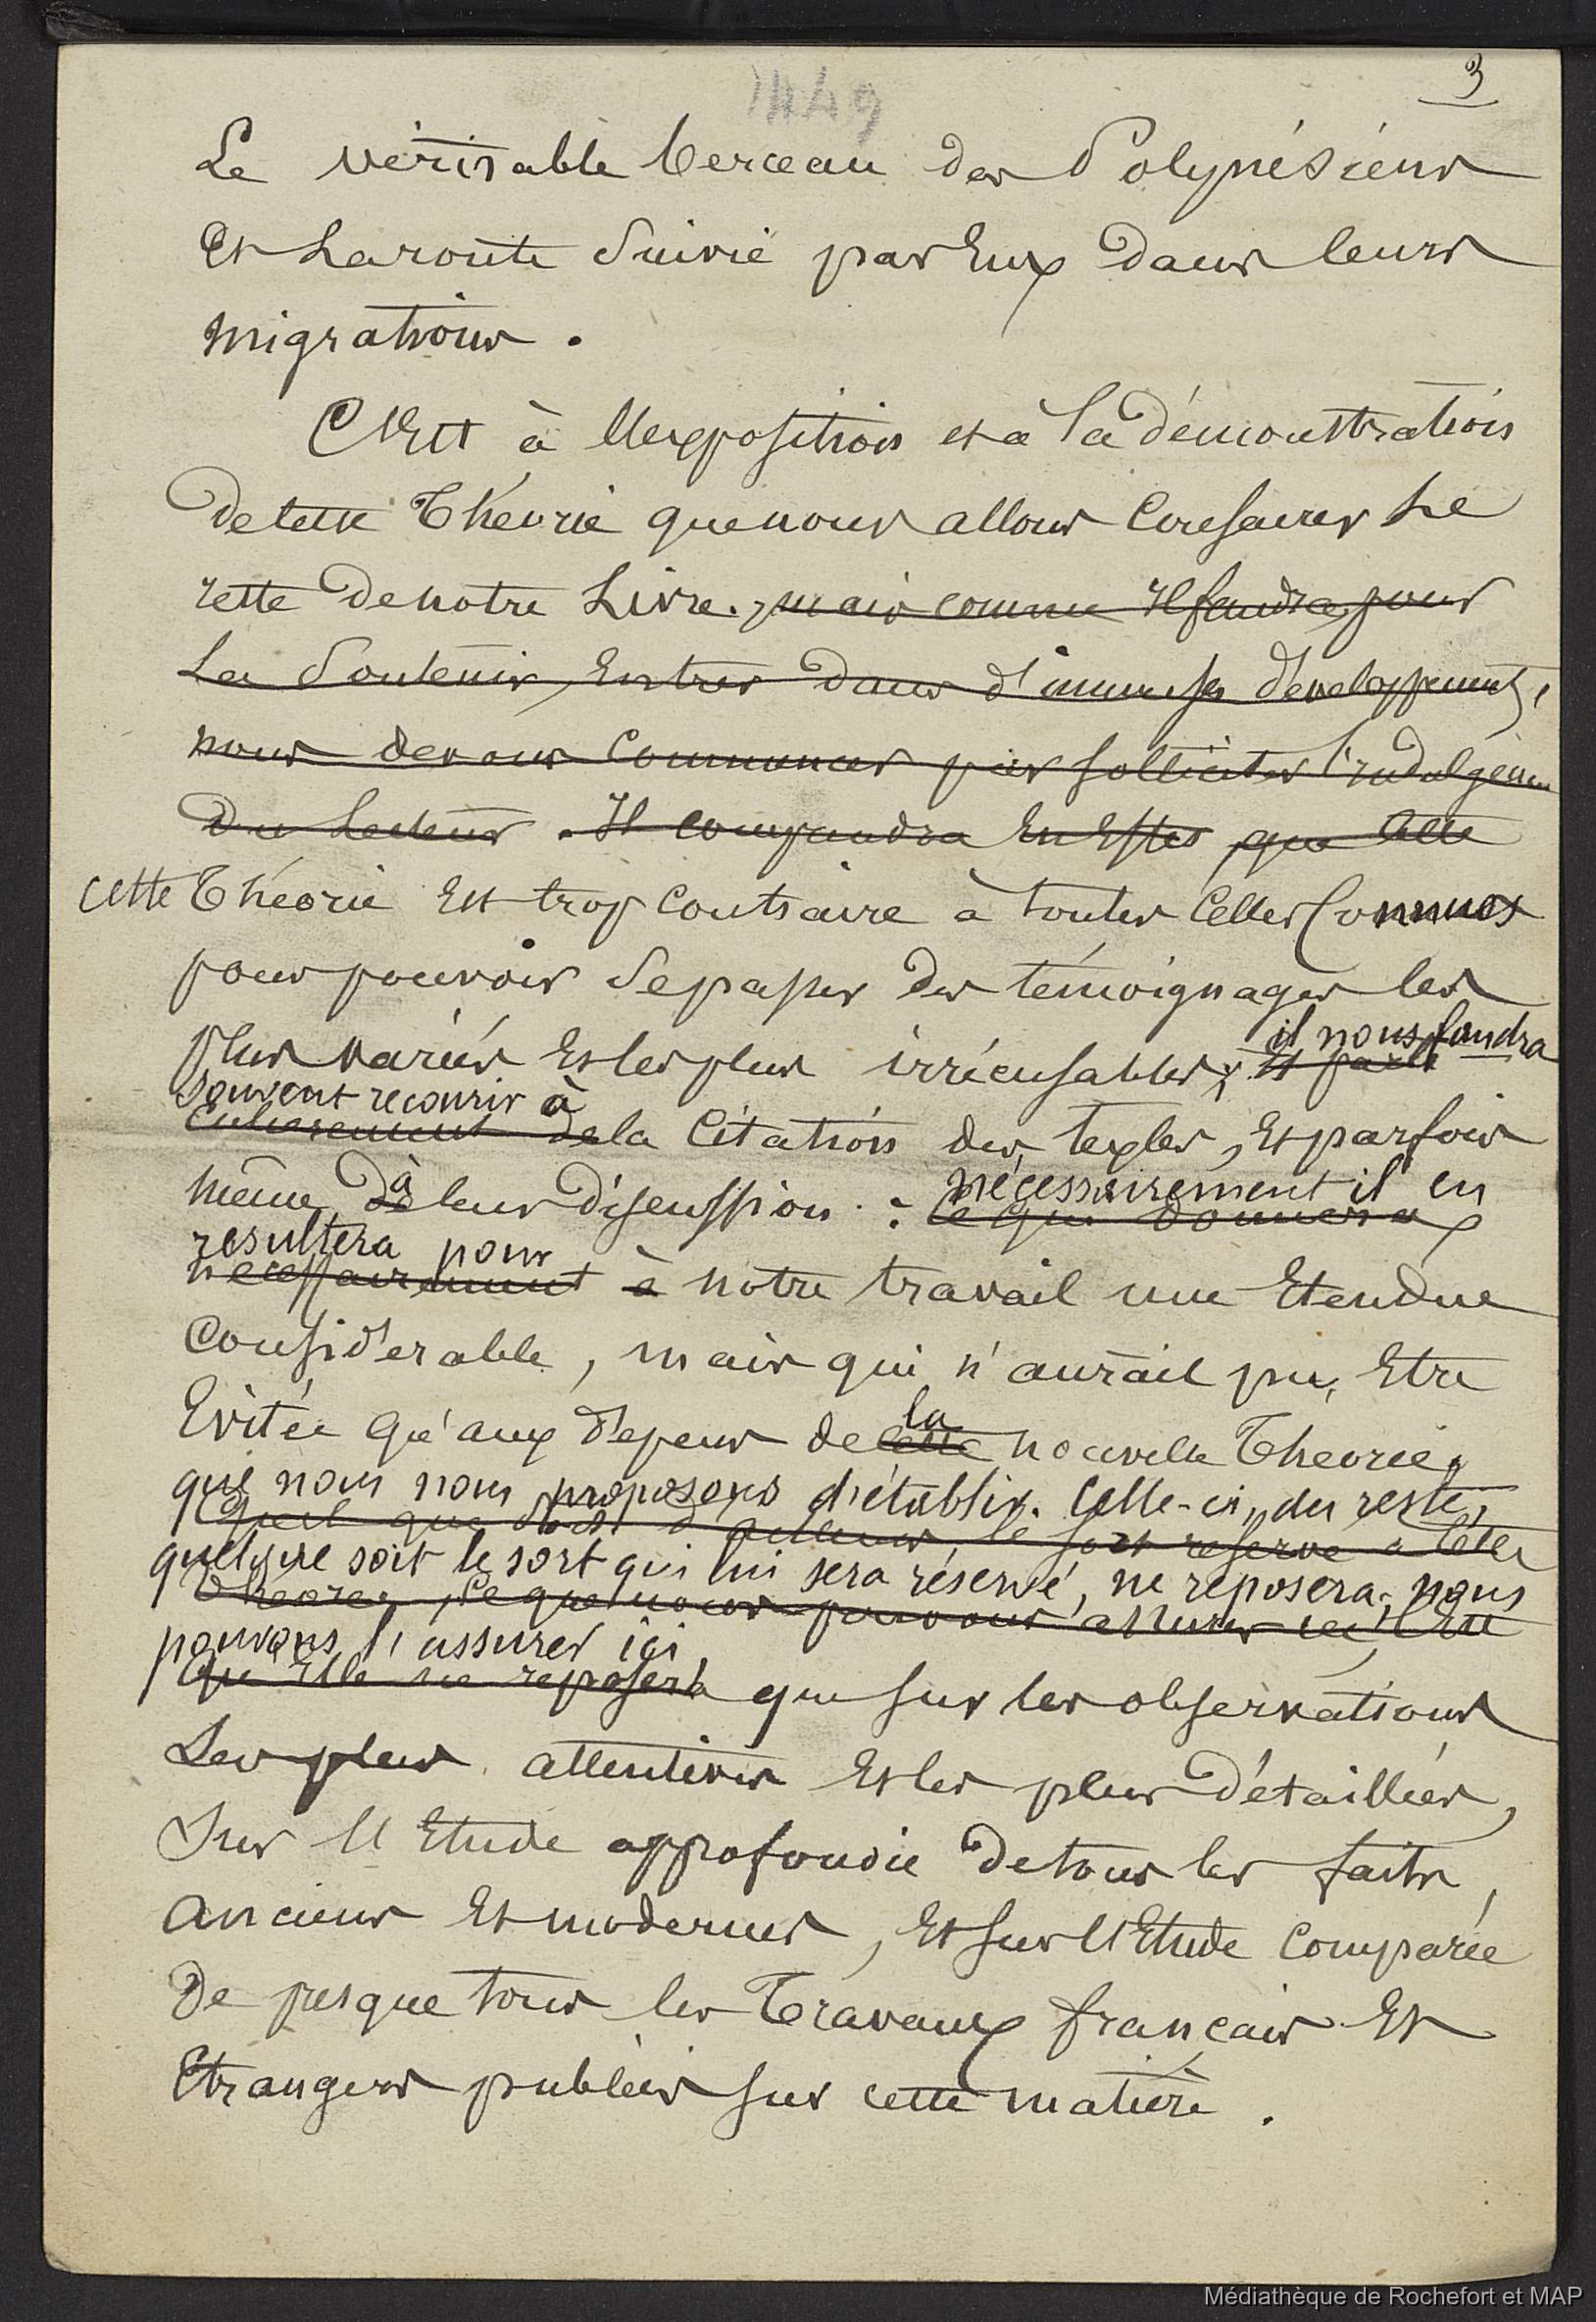 3
Le véritable berceau des Polynésiens
et la route suivie par eux dans leurs
migrations.
C'est à l'exposition et à la démonstration
de cette théorie que nous allons consacrer le
reste de notre livre. mais comme il faudra, pour
la soutenir, entrer dans d'immenses développements,
nous devons commencer par solliciter l'indulgence
du lecteur. Il comprendra en effet que cette
cette théorie est trop contraire à toutes celles connues
pour pouvoir se passer des témoignages les
il nous faudra
plus variés et les plus irrécusables; et
souvent recourir à
de la citation des textes, et parfois
à nécessairement il en
même de leur discussion : ce qui donnera
resultera pour
nécessairement à notre travail une étendue
considérable, mais qui n'aurait pu être
la
évitée qu'aux dépens de cette nouvelle théorie
que nous nous proposons d'établir. Celle-ci, du reste,
Quel que soit d'ailleurs le sort réservé à cette
quelque soit le sort qui lui sera réservé, ne reposera, nous
théorie, ce que nous pouvons assurer ici c'est
pouvons l'assurer ici,
qu'elle ne reposera que sur les observations
les plus attentives et les plus détaillées,
sur l'étude approfondie de tous les faits
anciens et modernes, et sur l'étude comparée
de presque tous les travaux français et
étrangers publiés sur cette matière.
Médiathèque de Rochefort et MAP